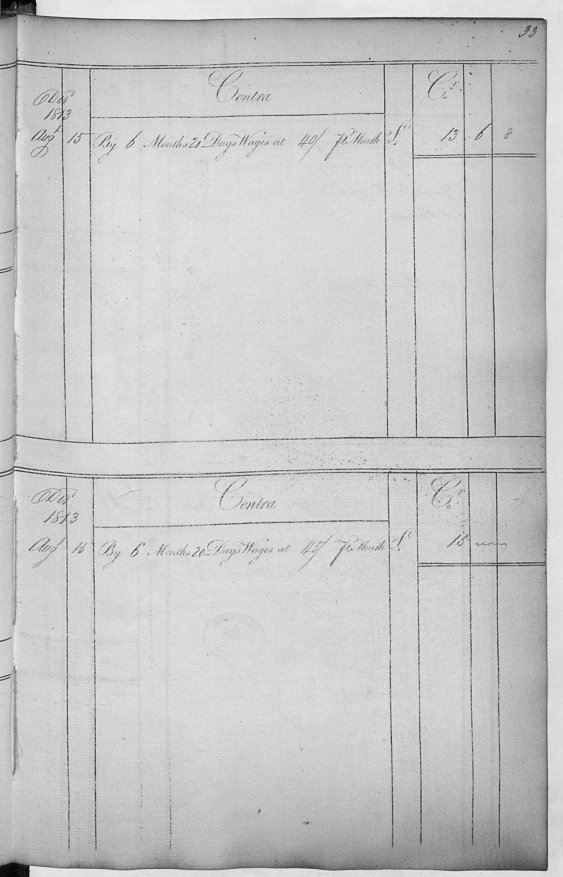 33
Contra Cr
1813
Augt 15 By 6 Months 20 Days Wages at 40/ pr Month 13 6 8
Contra Cr
1813
Augt 15 By 6 Months 20 Days Wages at 45/ pr Month 15